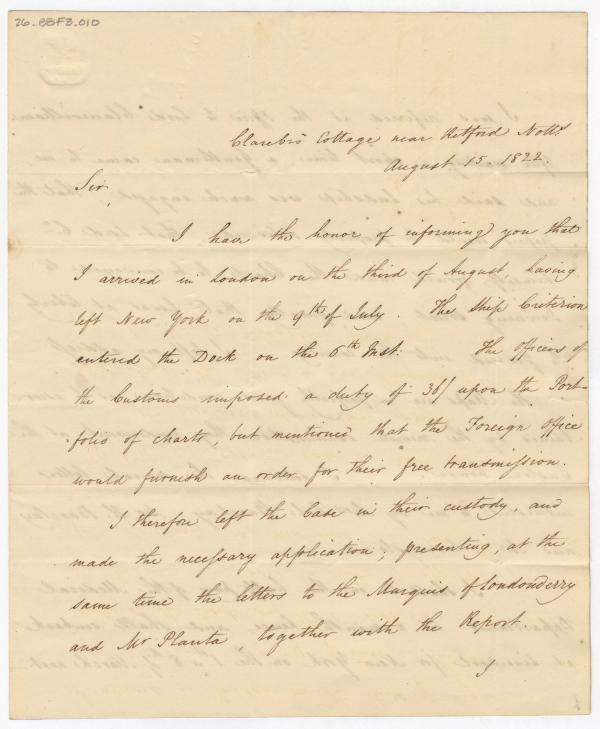 26-BBF3.010
Clarebro' Cottage near Retford Notts
August 15. 1822.
Sir,
I have the honor of informing you that
I arrived in London on the third of August, having
left New York on the 9th of July. The Ship Criterion
entered the Dock on the 6th Inst: The Officers of
the Customs imposed a duty of 36/ upon the Port-
folio of charts, but mentioned that the Foreign Office
would furnish an order for their free transmission.
I therefore left the Case in their custody, and
made the necessary application; presenting, at the
same time the letters to the Marquis of Londonderry
and Mr Planta, together with the Report.